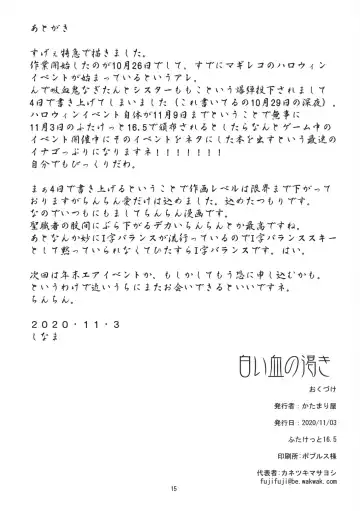 あとがき
すげぇ特急で描きました。
作業開始したのが10月26日でして、すでにマギレコのハロウィン
イベントが始まっているというアレ。
んで吸血鬼なぎたんとシスターももこという爆弾投下されまして
4日で書き上げてしまいました(これ書いてるの10月29日の深夜)。
ハロウィンイベント自体が11月9日までということで無事に
11月3日のふたけっと16.5で頒布されるとしたらなんとゲーム中の
イベント開催中にそのイベントをネタにした本を出すという最速の
イナゴっぷりになりますネ!!!!!!!
自分でもびっくりだわ。
まぁ4日で書き上げるということで作画レベルは限界まで下がって
おりますがちんちん愛だけは込めました。込めたつもりです。
なのでいつもにもましてちんちん漫画です。
聖職者の股間にぶら下がるデカいちんちんとか最高ですね。
あとなんか妙にI字バランスが流行っているのでI字バランススキー
として黙っていられなくてひたすらI字バランスです。はい。
次回は年末エアイベントか、もしかしてもう恋に申し込むかも。
というわけで近いうちにまたお会いできるといいですネ。
ちんちん。
2020・11・3
しなま
白い血の渇き
おくづけ
発行者:かたまり屋
発行日:2020/11/03
ふたけっと16.5
印刷所:ポプルス様
代表者:カネツキマサヨシ
fujifuji@be.wakwak.com
15